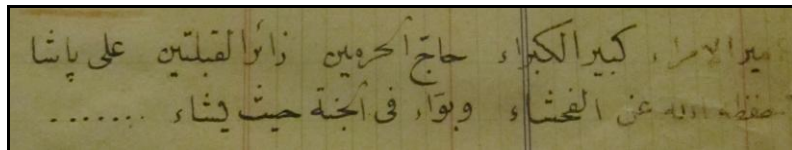 ميرالامراء كبير الكبراء حاج الحرمين زائر القبلتين على پاشا
حفظه الله عن الفحشاء وبواء فى الجنة حيث يشاء .......